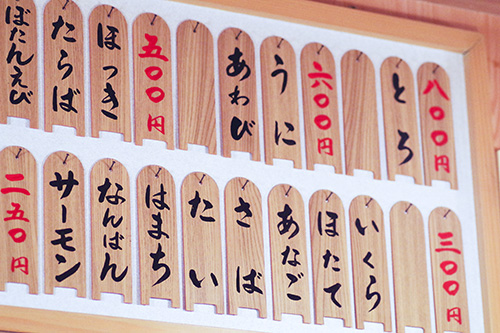 八〇〇円
とろ
六〇〇円
うに
あわび
五〇〇円
ほっき
たらば
ぼたんえび
三〇〇円
いくら
ほたて
あなご
さば
たい
はまち
なんばん
サーモン
二五〇円